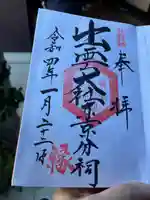 奉拝
出雲大社東京分祠
令和四年一月二十二日
縁